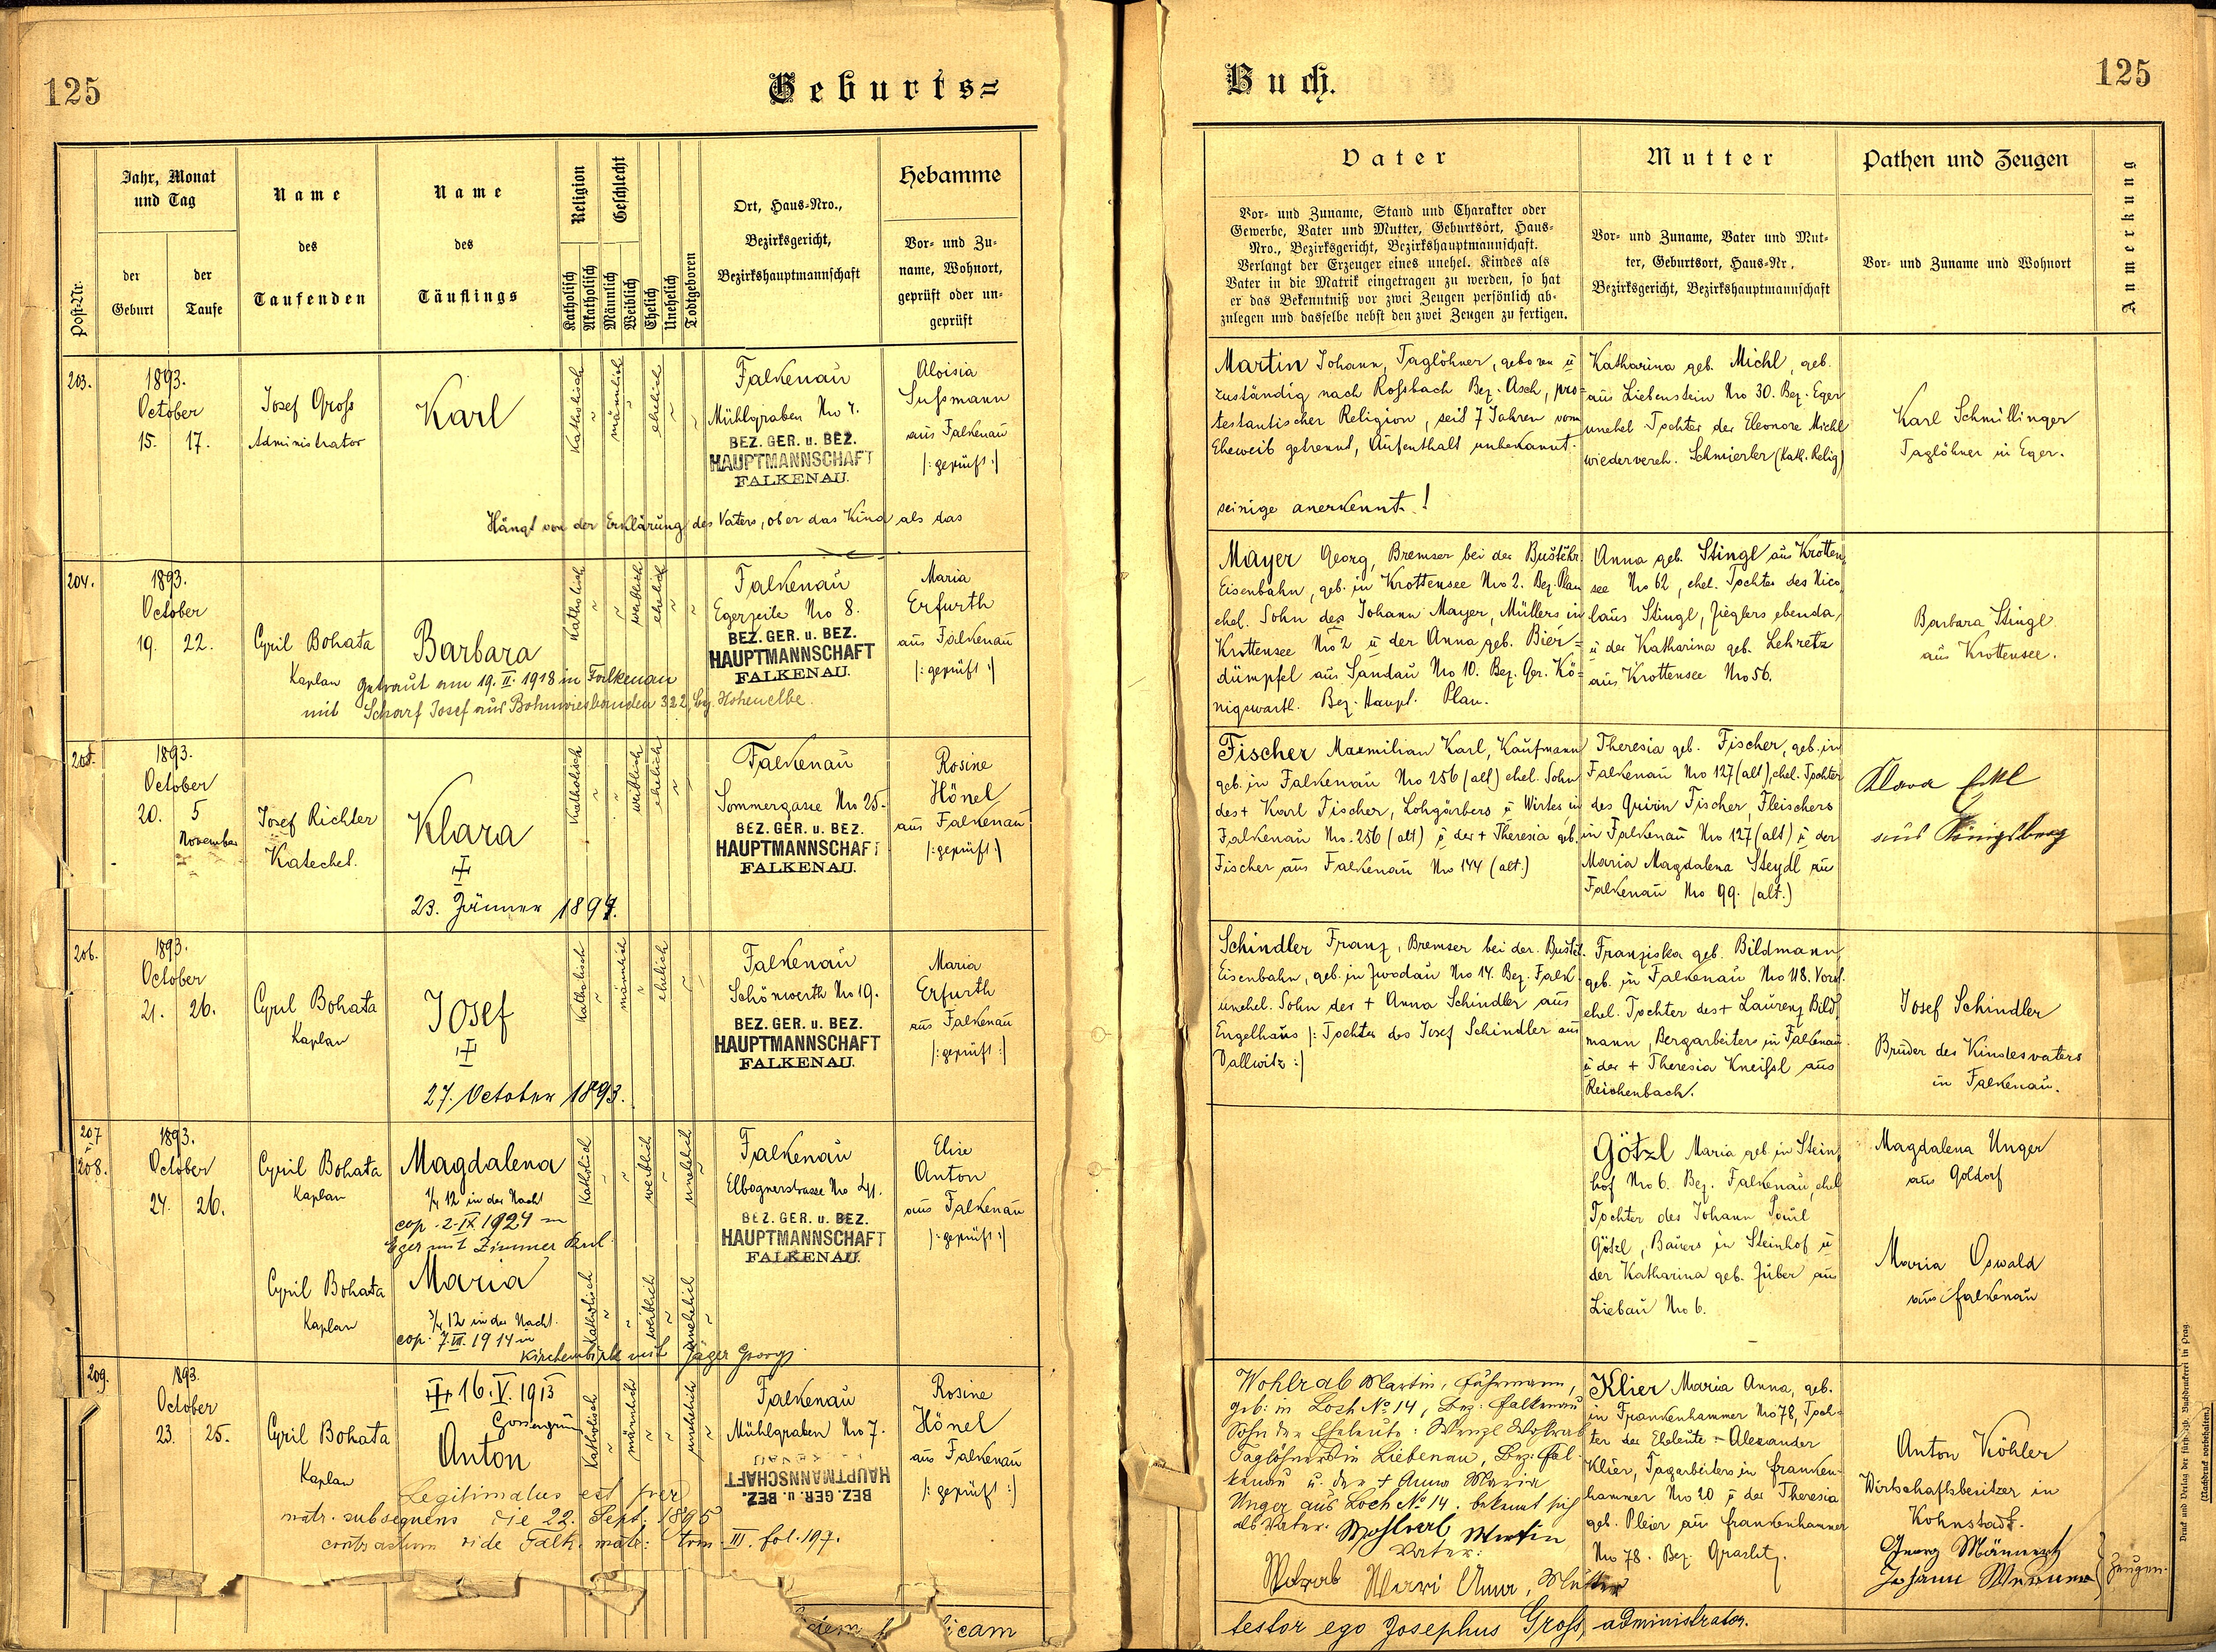 125
Geburts=
Jahr, Monat
und Tag
Name
des
Taufenden
Name
des
Täuflings
Religion
Geschlecht
Ort, Haus-Nro.,
Bezirksgericht,
Bezirkshauptmannschaft
Hebamme
Vor- und Zu-
name, Wohnort,
geprüft oder un-
geprüft
Post-Nr.
der
Geburt
der
Taufe
Katholisch
Akatholisch
Männlich
Weiblich
Ehelich
Unehelich
Todtgeboren
203.
1893.
October
15. 17.
Josef Gross
Administrator
Karl
Katholisch
männlich
ehelich
Falkenau
Mühlgraben Nro 7.
BEZ. GER. u. BEZ.
HAUPTMANNSCHAFT
FALKENAU.
Aloisia
Sussmann
aus Falkenau
/: geprüft :/
Hängt von der Erklärung des Vaters, ob er das Kind als das
204.
1893.
October
19. 22.
Cyril Bohata
Kaplan
Barbara
Katholisch
weiblich
ehelich
Falkenau
Egerzeile Nro 8.
BEZ. GER. u. BEZ.
HAUPTMANNSCHAFT
FALKENAU.
Maria
Erfurth
aus Falkenau
/: geprüft :/
getraut am 19. II. 1918 in Falkenau
mit Scharf Josef aus Bohnwiesbauden 322, bz. Hohenelbe.
205.
1893.
October
20. 5
November
Josef Richter
Katechet.
Klara
23. Jänner 1894.
Katholisch
weiblich
ehelich
Falkenau
Sommergasse Nro 25.
BEZ. GER. u. BEZ.
HAUPTMANNSCHAFT
FALKENAU.
Rosine
Hönel
aus Falkenau
/: geprüft :/
206.
1893.
October
21. 26.
Cyril Bohata
Kaplan
Josef
27. October 1893.
Katholisch
männlich
ehelich
Falkenau
Schönwerth Nro 19.
BEZ. GER. u. BEZ.
HAUPTMANNSCHAFT
FALKENAU.
Maria
Erfurth
aus Falkenau
/: geprüft :/
207
208.
1893.
October
24. 26.
Cyril Bohata
Kaplan
Magdalena
1/4 12 in der Nacht
cop. 2. IX. 1924 in
Eger mit Zimmer Karl
Katholisch
weiblich
unehelich
Falkenau
Elbognerstrasse Nro 41.
BEZ. GER. u. BEZ.
HAUPTMANNSCHAFT
FALKENAU.
Elise
Anton
aus Falkenau
/: geprüft :/
Cyril Bohata
Kaplan
Maria
3/4 12 in der Nacht.
cop. 7. VII. 1914 in
Kirchenbirk mit Jäger Georg.
Katholisch
weiblich
unehelich
209.
1893.
October
23. 25.
Cyril Bohata
Kaplan
16. V. 1913
Gossengrün
Anton
Katholisch
männlich
unehelich
Falkenau
Mühlgraben Nro 7.
BEZ. GER. u. BEZ.
HAUPTMANNSCHAFT
FALKENAU
Rosine
Hönel
aus Falkenau
/: geprüft :/
Legitimatus est per
matr. subsequens die 22. Sept. 1895
contractum vide Falk. matr: tom. III. fol. 197.
icam
Buch.
125
Vater
Vor- und Zuname, Stand und Charakter oder
Gewerbe, Vater und Mutter, Geburtsort, Haus-
Nro., Bezirksgericht, Bezirkshauptmannschaft.
Verlangt der Erzeuger eines unehel. Kindes als
Vater in die Matrik eingetragen zu werden, so hat
er das Bekenntniß vor zwei Zeugen persönlich ab-
zulegen und dasselbe nebst den zwei Zeugen zu fertigen.
Mutter
Vor- und Zuname, Vater und Mut-
ter, Geburtsort, Haus-Nr.,
Bezirksgericht, Bezirkshauptmannschaft
Pathen und Zeugen
Vor- und Zuname und Wohnort
Anmerkung
Martin Johann, Taglöhner, geboren u
zuständig nach Rossbach Bez. Asch, pro=
testantischer Religion, seit 7 Jahren vom
Eheweib getrennt, Aufenthalt unbekannt.
seinige anerkennt.!
Katharina geb. Michl, geb.
aus Liebenstein Nro 30. Bez. Eger
unehel Tochter der Eleonore Michl
wiedervereh. Schmierler (Kath. Relig)
Karl Schmillinger
Taglöhner in Eger.
Mayer Georg, Bremser bei der Buštěhr.
Eisenbahn, geb. in Krottensee Nro 2. Bez. Plan
ehel. Sohn des Johann Mayer, Müllers in
Krottensee Nro 2 u der Anna geb. Bier=
dümpfel aus Sandau Nro 10. Bez. Ger. Kö=
nigswarth. Bez. Haupt. Plan.
Anna geb. Stingl aus Krotten=
see Nro 62, ehel. Tochter des Nico=
laus Stingl, Zieglers ebenda,
u der Katharina geb. Lehretz
aus Krottensee Nro 56.
Barbara Stingl
aus Krottensee.
Fischer Maxmilian Karl, Kaufmann
geb. in Falkenau Nro 256 (alt) ehel. Sohn
des + Karl Fischer, Lohgärbers u Wirtes in
Falkenau Nro. 256 (alt) u der + Theresia geb.
Fischer aus Falkenau Nro 144 (alt.)
Theresia geb. Fischer, geb. in
Falkenau Nro 127 (alt), ehel. Tochter
des Quirin Fischer, Fleischers
in Falkenau Nro 127 (alt) u der
Maria Magdalena Steydl aus
Falkenau Nro 99. (alt.)
Klara
aus Königsberg
Schindler Franz, Bremser bei der Buštěh.
Eisenbahn, geb. in Zwodau Nro 14. Bez. Falk.
unehel. Sohn der + Anna Schindler aus
Engelhaus /: Tochter des Josef Schindler aus
Dallwitz :/
Franziska geb. Bildmann,
geb. in Falkenau Nro 118. Vorst.
ehel. Tochter des + Laurenz Bild=
mann, Bergarbeiters in Falkenau
u der + Theresia Kneissl aus
Reichenbach.
Josef Schindler
Bruder des Kindesvaters
in Falkenau.
Götzl Maria geb. in Stein=
hof Nro 6. Bez. Falkenau, ehel
Tochter des Johann Paul
Götzl, Bauers in Steinhof u
der Katharina geb. Zuber aus
Liebau Nro 6.
Magdalena Unger
aus Goldorf
Maria Oswald
aus Falkenau
Wohlrab Martin, Fuhrmann,
geb: in Loch No 14, Bez: Falkenau
Sohn der Eheleute: Wenzl Wohlrab
Taglöhner in Liebenau, Bez. Fal=
kenau u. der + Anna Maria
Unger aus Loch No 14. bekennt sich
als Vater. Wohlrab Martin
Vater:
Wohlrab Mari Anna, Mutter
Klier Maria Anna, geb.
in Frankenhammer Nro 78, Toch=
ter der Eheleute = Alexander
Klier, Tagarbeiters in Franken=
hammer Nro 20 u der Theresia
geb. Pleier aus Frankenhammer
Nro 78. Bez. Graslitz.
Anton Köhler
Wirtschaftsbesitzer in
Kohnstadt.
Georg
Johann
Zeugen.
testor ego Josephus Gross, administrator.
Druck und Verlag der fürsterzb. Buchdruckerei in Prag.
(Nachdruck vorbehalten.)